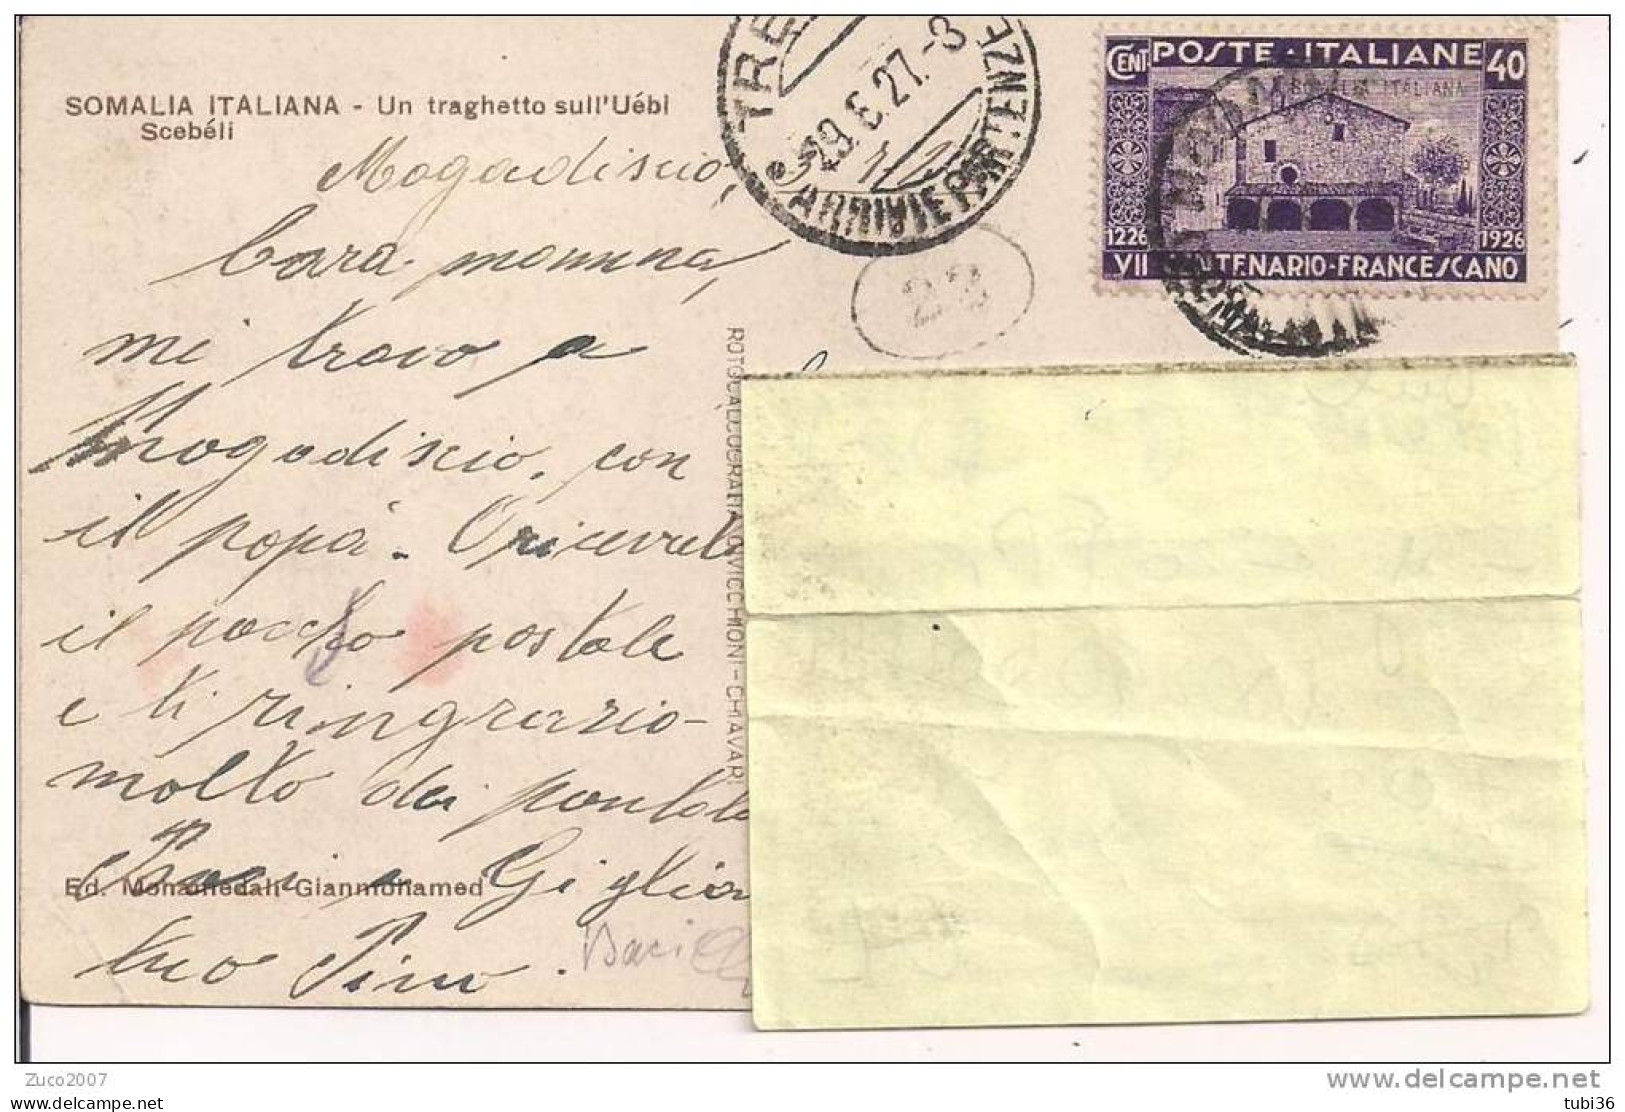 SOMALIA ITALIANA - Un traghetto sull'Uébi
Scebéli
Mogadiscio,
Cara mamma,
mi trovo a
Mogadiscio, con
il papà.
il pacco postale
e ti ringrazio
molto dei
Baci a
tuo Pino.
Baci
Ed. Monamedali Gianmohamed
CHIAVARI
TRE
29.6.27.-8
ARRIVI E PARTENZE
CENT POSTE·ITALIANE 40
SOMALIA ITALIANA
1226 1926
VII CENTENARIO·FRANCESCANO
Zuco2007
www.delcampe.net
tubi36